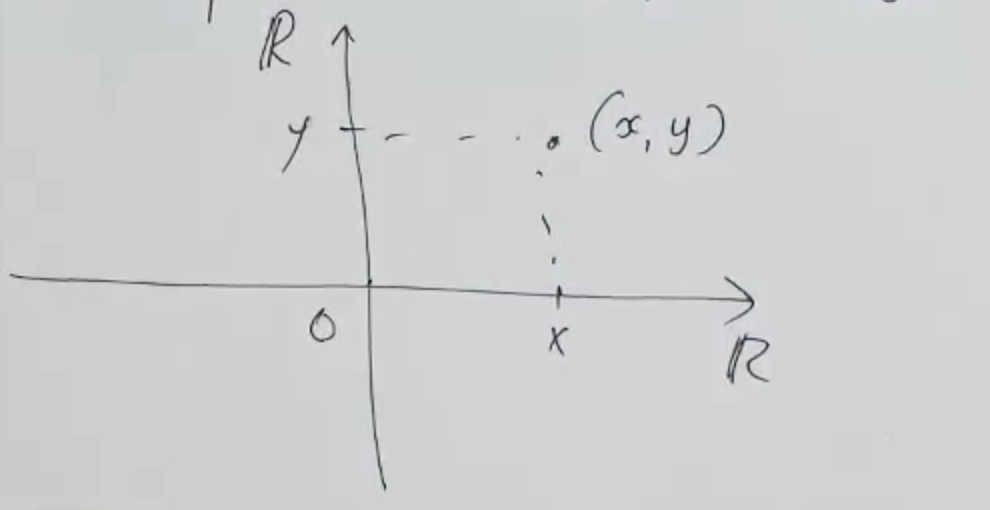 ℝ
y (x, y)
0 x
ℝ